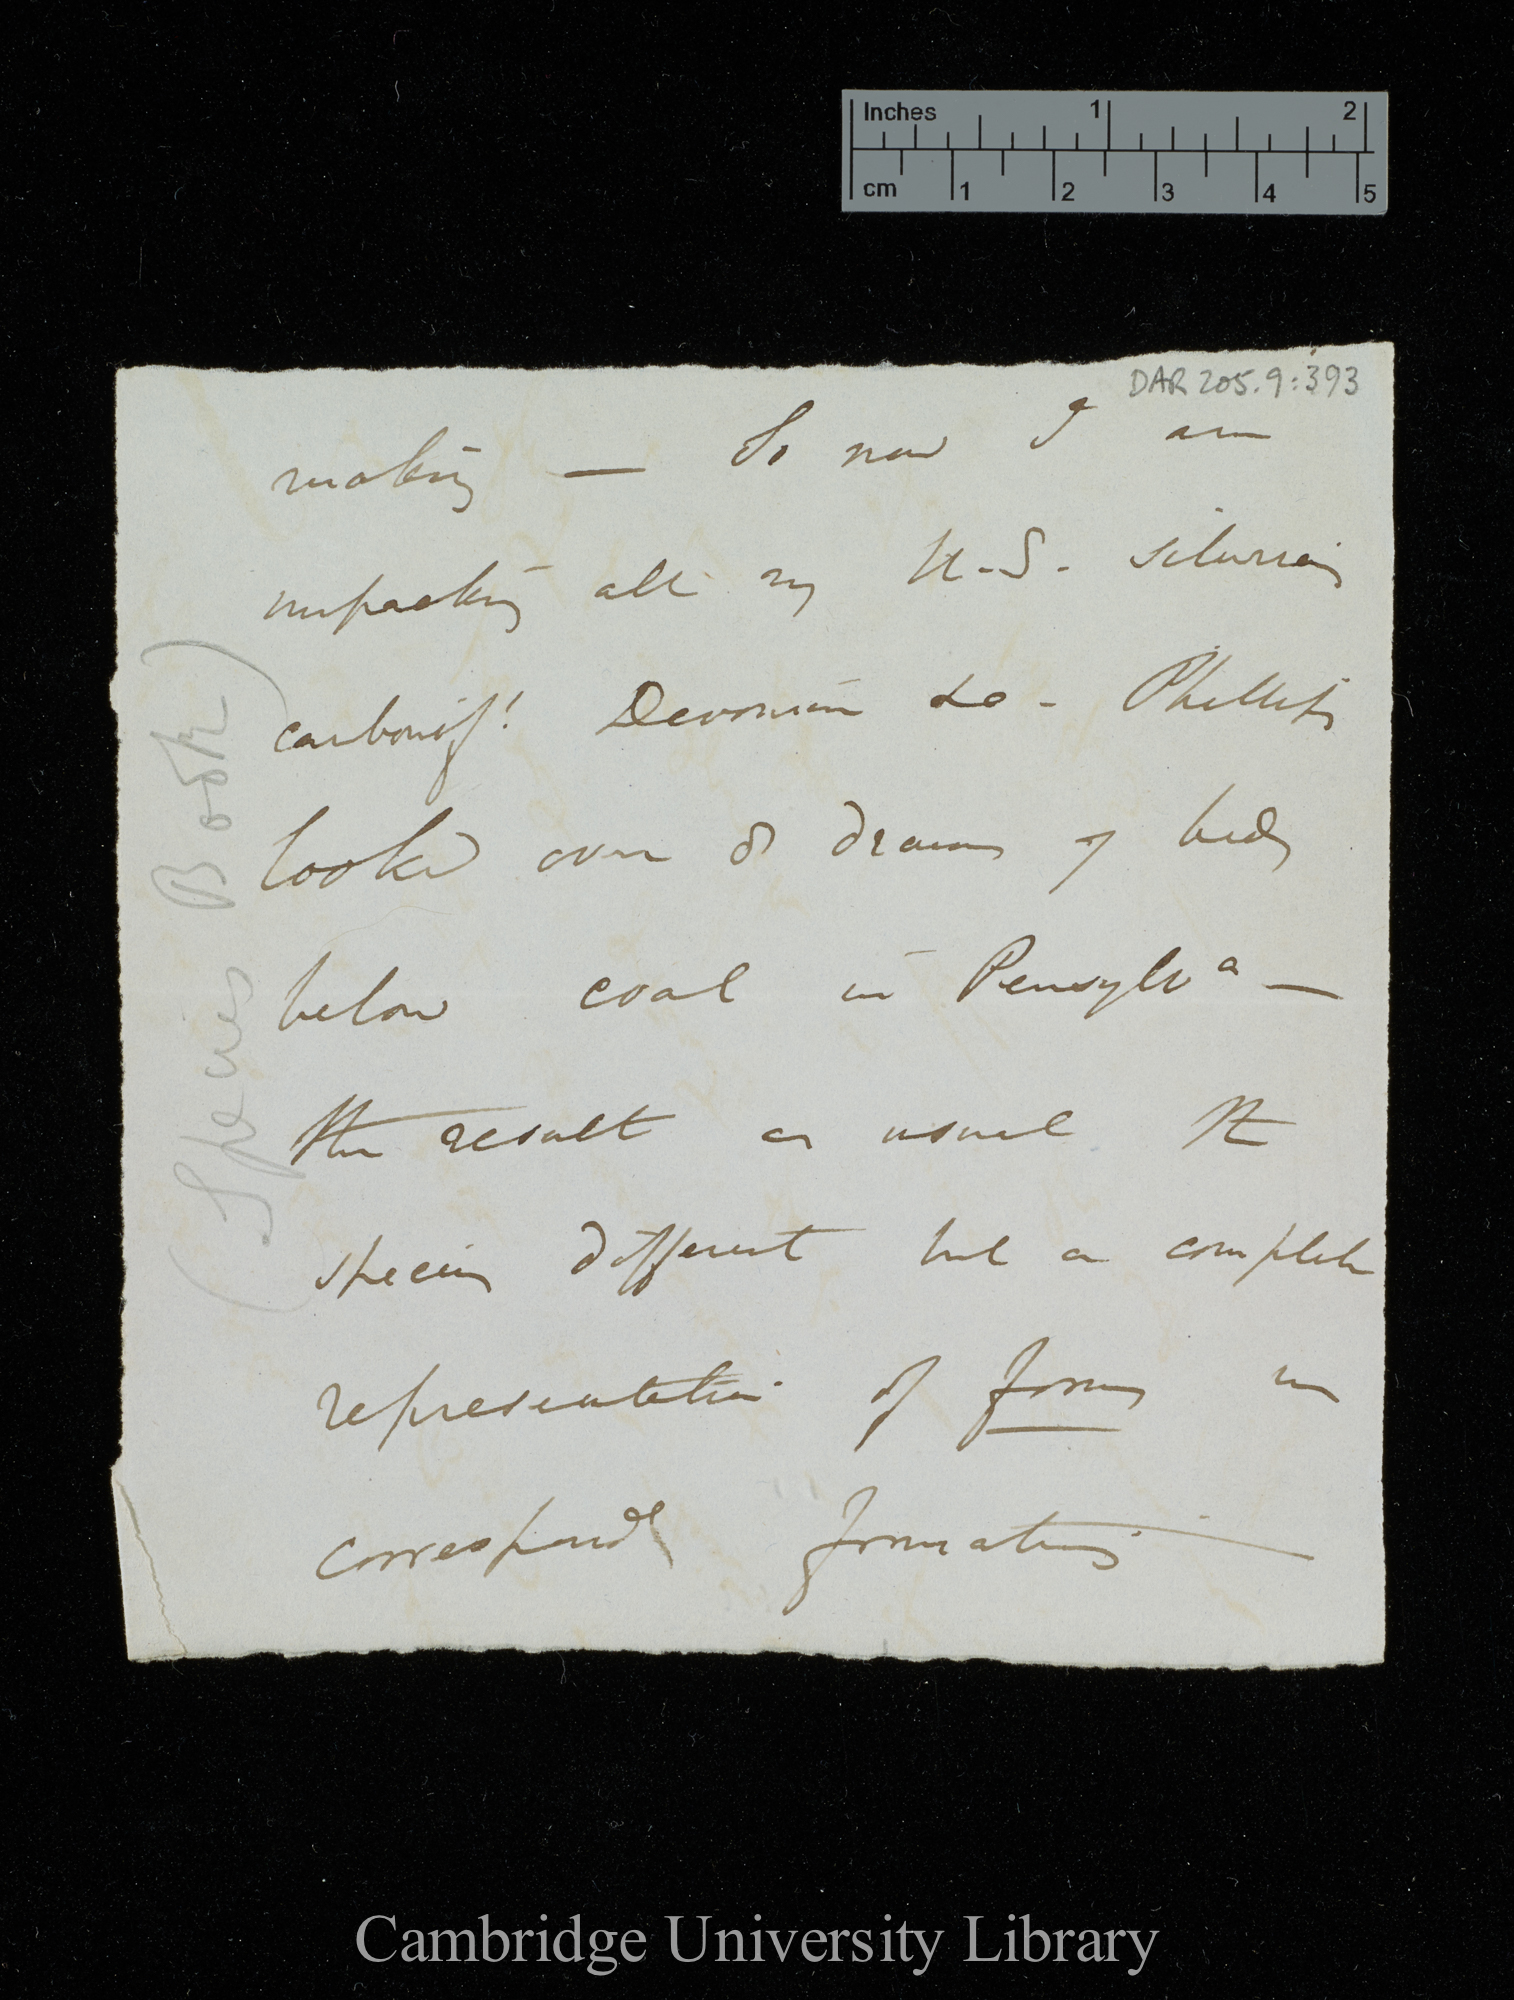 Inches 1 2
cm 1 2 3 4 5
DAR 205.9:393
making — So now I am
unpacking all my U.S. Silurian
carbonif! Devonian &c - Phillips
looked over 8 drawers of beds
below coal in Pensylvª —
the result as usual The
species different but a complete
representation of forms in
correspond formations
(Species Book)
Cambridge University Library